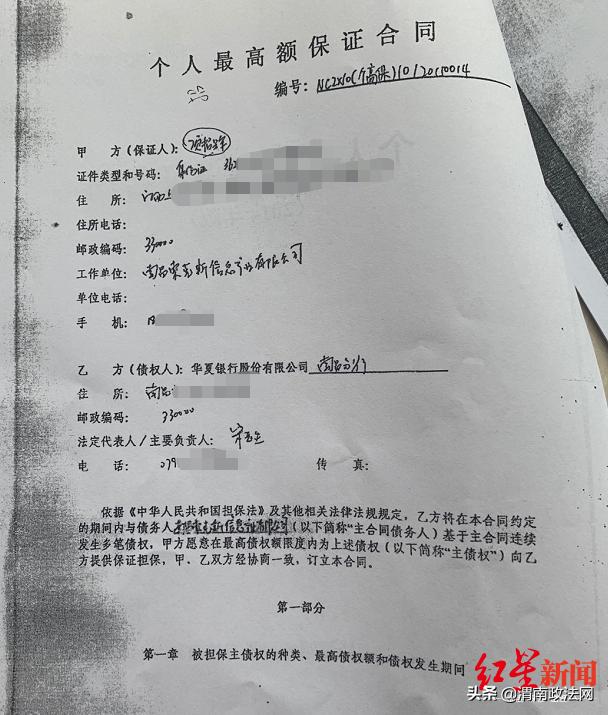 个人最高额保证合同
编号：NC2X10(个高保)10120110014
甲 方（保证人）：
证件类型和号码：身份证 362
住 所：江西
住所电话：
邮政编码：330000
工作单位：南昌 信息产业有限公司
单位电话：
手 机：
乙 方（债权人）：华夏银行股份有限公司 南昌分行
住 所：南昌
邮政编码：330000
法定代表人/主要负责人：
电 话：079 传 真：
依据《中华人民共和国担保法》及其他相关法律法规规定，乙方将在本合同约定
的期间内与债务人 信息产业有限公司（以下简称“主合同债务人）基于主合同连续
发生多笔债权，甲方愿意在最高债权额限度内为上述债权（以下简称“主债权”）向乙
方提供保证担保，甲、乙双方经协商一致，订立本合同。
第一部分
第一章 被担保主债权的种类、最高债权额和债权发生期间
红星新闻
头条 @渭南政法网